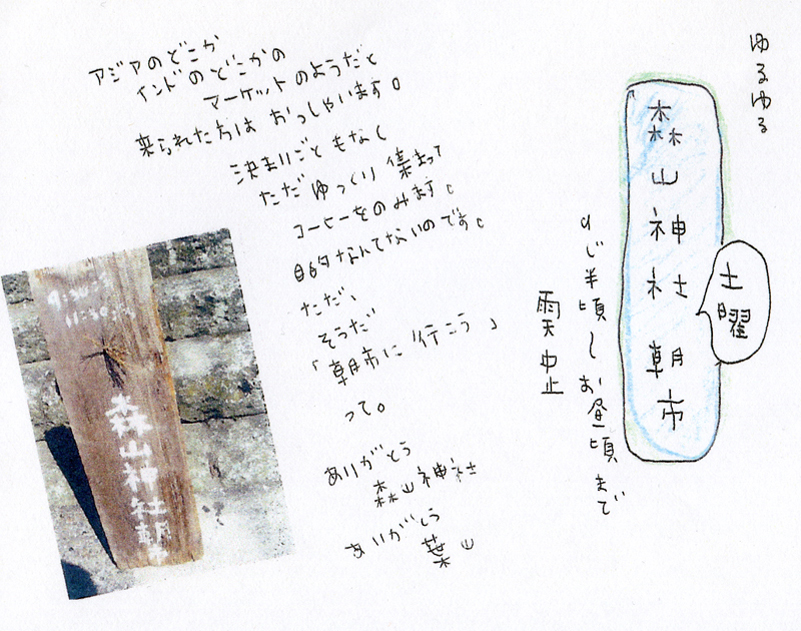 ゆるゆる
森山神社 朝市
土曜
9じ半頃〜お昼頃まで
雨天中止
アジアのどこか
インドのどこかの
マーケットのようだと
来られた方は おっしゃいます。
決まりごともなく
ただ ゆっくり 集まって
コーヒーをのみます。
目的なんてないのです。
ただ、
そうだ
「朝市に 行こう」
って。
ありがとう
森山神社
ありがとう
葉山
森山神社朝市